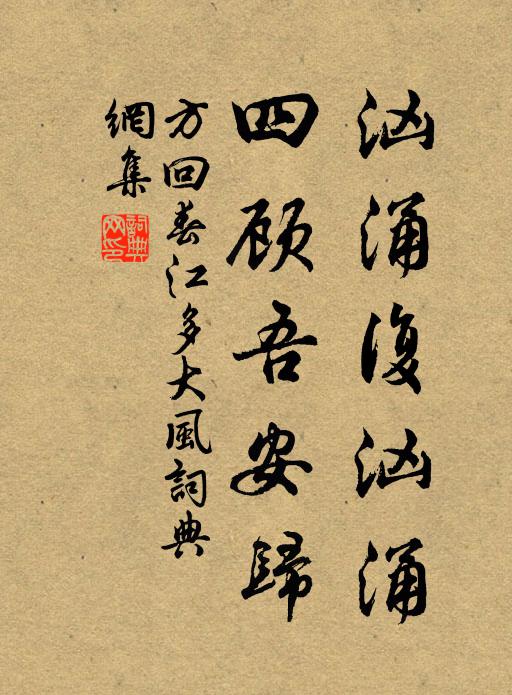 洶涌復洶涌
四顧吾安歸
方回春江多大風詞典
網集
詞典
网印